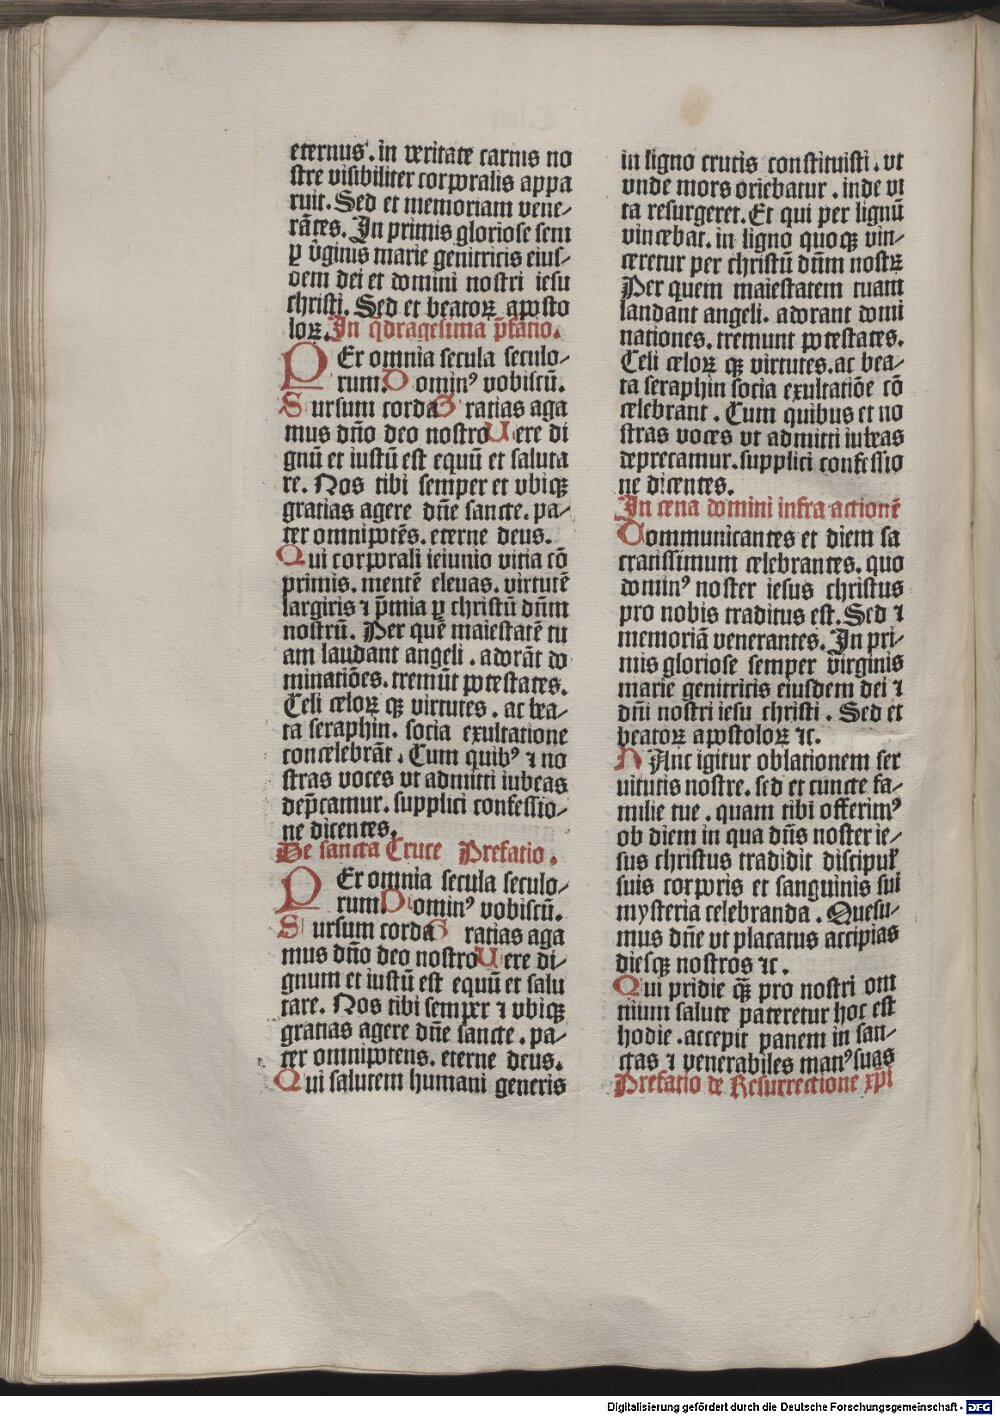 eternus. in veritate carnis no
stre visibiliter corporalis appa
ruit. Sed et memoriam vene/
rātes. In primis gloriose sem
ꝑ v̄ginis marie genitricis eius/
dem dei et domini nostri iesu
christi. Sed et beatoꝝ aposto
loꝝ. In q̄dragesima p̄fatio.
PEr omnia secula seculo/
rum. Dominꝰ vobiscū.
Sursum corda Gratias aga
mus dño deo nostro Vere di
gnū et iustū est equū et saluta
re. Nos tibi semper et vbiqꝫ
gratias agere dñe sancte. pa/
ter omnipotēs. eterne deus.
Qui corporali ieiunio vitia cō
primis. mentē eleuas. virtutē
largiris ⁊ p̄mia ꝑ christū dñm
nostrū. Per quē maiestatē tu
am laudant angeli. adorāt do
minatiōes. tremūt potestates.
Celi celoꝝ qꝫ virtutes. ac bea/
ta seraphin. socia exultatione
concelebrāt. Cum quibꝰ ⁊ no
stras voces vt admitti iubeas
dep̄camur. supplici confessio/
ne dicentes.
De sancta Cruce Prefatio.
PEr omnia secula seculo/
rum Dominꝰ vobiscū.
Sursum corda Gratias aga
mus dño deo nostro Vere di/
gnum et iustū est equū et salu
tare. Nos tibi semper ⁊ vbiqꝫ
gratias agere dñe sancte. pa/
ter omnipotens. eterne deus.
Qui salutem humani generis
in ligno crucis constituisti. vt
vnde mors oriebatur. inde vi
ta resurgeret. Et qui per lignū
vincebat. in ligno quoqꝫ vin/
ceretur per christū dñm nostꝝ
Per quem maiestatem tuam
laudant angeli. adorant domi
nationes. tremunt potestates.
Celi celoꝝ qꝫ virtutes. ac bea/
ta seraphin socia exultatiōe cō
celebrant. Cum quibus et no
stras voces vt admitti iubeas
deprecamur. supplici confessio
ne dicentes.
In cena domini infra actionē
Communicantes et diem sa
cratissimum celebrantes. quo
dominꝰ noster iesus christus
pro nobis traditus est. Sed ⁊
memoriā venerantes. In pri/
mis gloriose semper virginis
marie genitricis eiusdem dei ⁊
dñi nostri iesu christi. Sed et
beatoꝝ apostoloꝝ ⁊c.
HAnc igitur oblationem ser
uitutis nostre. sed et cuncte fa/
milie tue. quam tibi offerimꝰ
ob diem in qua dñs noster ie/
sus christus tradidit discipul̕
suis corporis et sanguinis sui
mysteria celebranda. Quesu/
mus dñe vt placatus accipias
diesqꝫ nostros ⁊c.
Qui pridie qꝫ̄ pro nostri om
nium salute pateretur hoc est
hodie. accepit panem in san/
ctas ⁊ venerabiles manꝰ suas
Prefatio de Resurrectione xp̄i
Digitalisierung gefördert durch die Deutsche Forschungsgemeinschaft - DFG